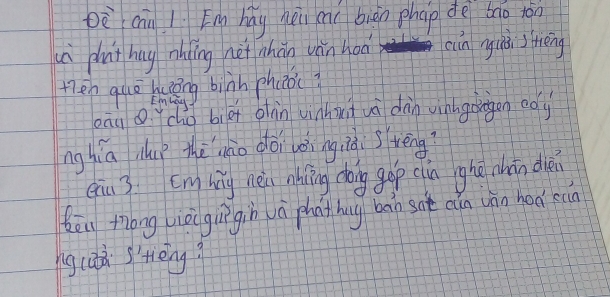 Đề: câu 1. Em hãy nêu các biện pháp để bảo tồn
và phát huy những nét nhân văn hoá của người S'tiêng
trên quê hương bình phước?
câu 2. Em hãy cho biết đàn vinh và đàn vinh goong có ý
nghĩa như thế nào đối với người S'tiêng?
câu 3. Em hãy nêu những đóng góp của nghệ nhân điểu
trong việc gữ gìn và phát huy bản sắc của văn hoá của
người S'tiêng?